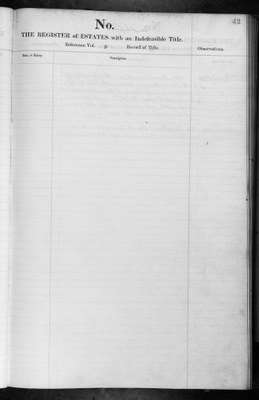 42
No.
THE REGISTER of ESTATES with an Indefeasible Title.
Reference: Vol. p Record of Title.
Observations.
Date of Entry.
Description.